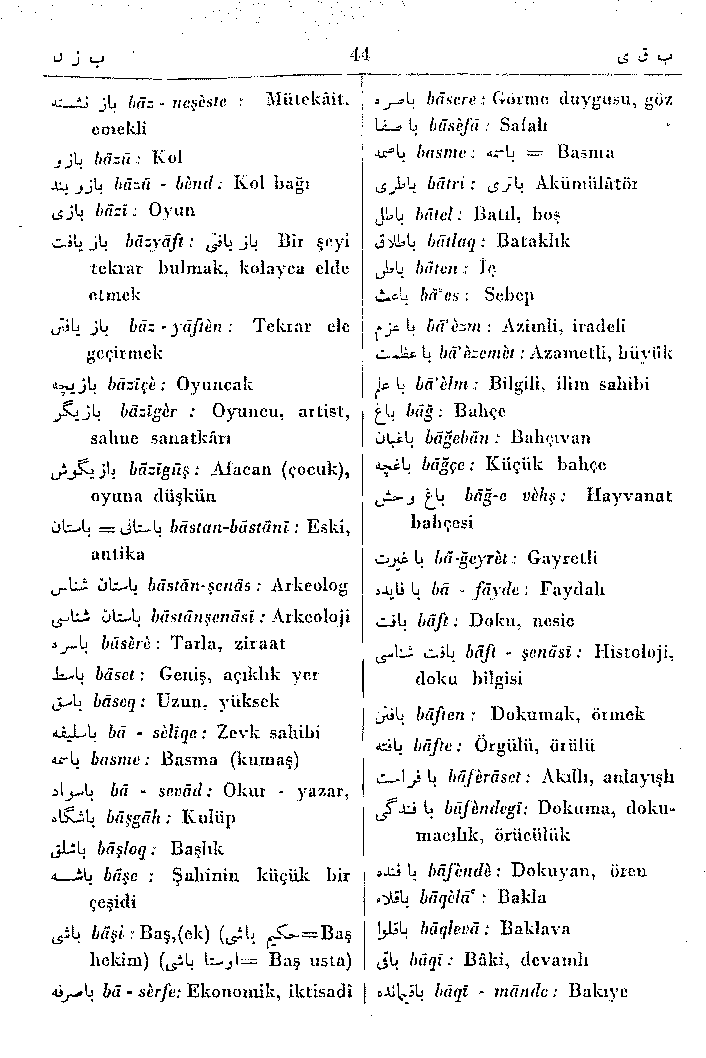 ب ز ن 44 ب ق ی
باز نشسته bāz - neşèste : Mütekâit,
emekli
بازو bāzū : Kol
بازو بند bāzū - bènd : Kol bağı
بازی bāzī : Oyun
باز یافت bāzyāft : باز یافتن Bir şeyi
tekrar bulmak, kolayca elde
etmek
باز یافتن bāz - yāftèn : Tekrar ele
geçirmek
بازیچه bāzīçè : Oyuncak
بازیگر bāzīgèr : Oyuncu, artist,
sahne sanatkârı
بازیگوش bāzīgūş : Afacan (çocuk),
oyuna düşkün
باستان = باستانی bāstan-bāstānī : Eski,
antika
باستان شناس bāstān-şenās : Arkeolog
باستان شناسی bāstānşenāsī : Arkeoloji
باسره bāsèrè : Tarla, ziraat
باسط bāset : Geniş, açıklık yer
باسق bāseq : Uzun, yüksek
باسلیقه bā - sèlīqe : Zevk sahibi
باسمه basme : Basma (kumaş)
باسواد bā - sevād : Okur - yazar,
باشگاه bāşgāh : Kulüp
باشلق bāşloq : Başlık
باشه bāşe : Şahinin küçük bir
çeşidi
باشی bāşi : Baş,(ek) (حکیم باشی=Baş
hekim) (اوستا باشی= Baş usta)
باصرفه bā - sèrfe: Ekonomik, iktisadi
باصره bāsere : Görme duygusu, göz
با صفا bāsèfā : Safalı
باصمه basme : باسمه = Basma
باطری bātri : باتری Akümülâtör
باطل bātel : Batıl, boş
باطلاق bātlaq : Bataklık
باطن bāten : İç
باعث bā'es : Sebep
با عزم bā'èzm : Azimli, iradeli
با عظمت bā'èzemèt : Azametli, büyük
با علم bā'èlm : Bilgili, ilim sahibi
باغ bāğ : Bahçe
باغبان bāğebān : Bahçıvan
باغچه bāğçe : Küçük bahçe
باغ وحش bāğ-e vèhş : Hayvanat
bahçesi
با غیرت bā-ğeyrèt : Gayretli
با فایده bā - fāyde : Faydalı
بافت bāft : Doku, nesic
بافت شناسی bāft - şenāsī : Histoloji,
doku bilgisi
بافتن bāften : Dokumak, örmek
بافته bāfte : Örgülü, örülü
با فراست bāfèrāset : Akıllı, anlayışlı
بافندگی bāfèndegī: Dokuma, doku-
macılık, örücülük
بافنده bāfèndè : Dokuyan, ören
باقلاء bāqèlā' : Bakla
باقلوا bāqlevā : Baklava
باقی bāqī : Bâki, devamlı
باقیمانده bāqī - mānde : Bakıye